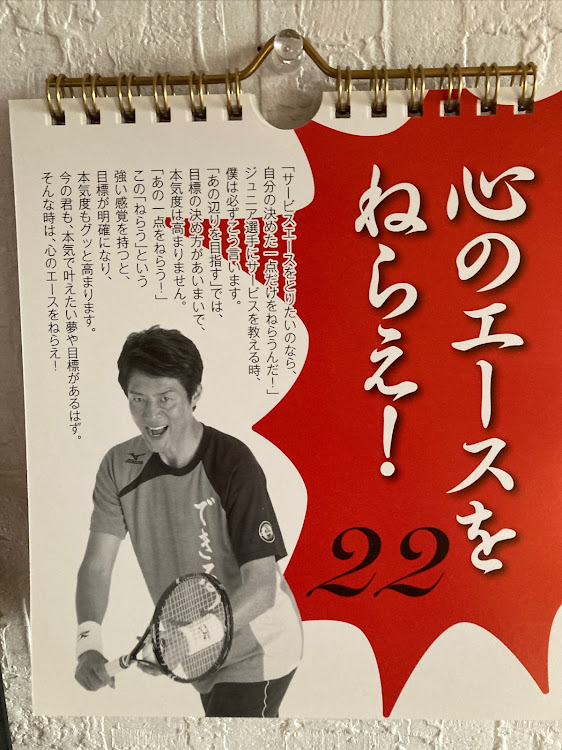 心のエースを
ねらえ！
22
「サービスエースをとりたいのなら、
自分の決めた一点だけをねらうんだ！」
ジュニア選手にサービスを教える時、
僕は必ずこう言います。
「あの辺りを目指す」では、
目標の決め方があいまいで、
本気度は高まりません。
「あの一点をねらう！」
この「ねらう」という
強い感覚を持つと、
目標が明確になり、
本気度もグッと高まります。
今の君も、本気で叶えたい夢や目標があるはず。
そんな時は、心のエースをねらえ！
できる